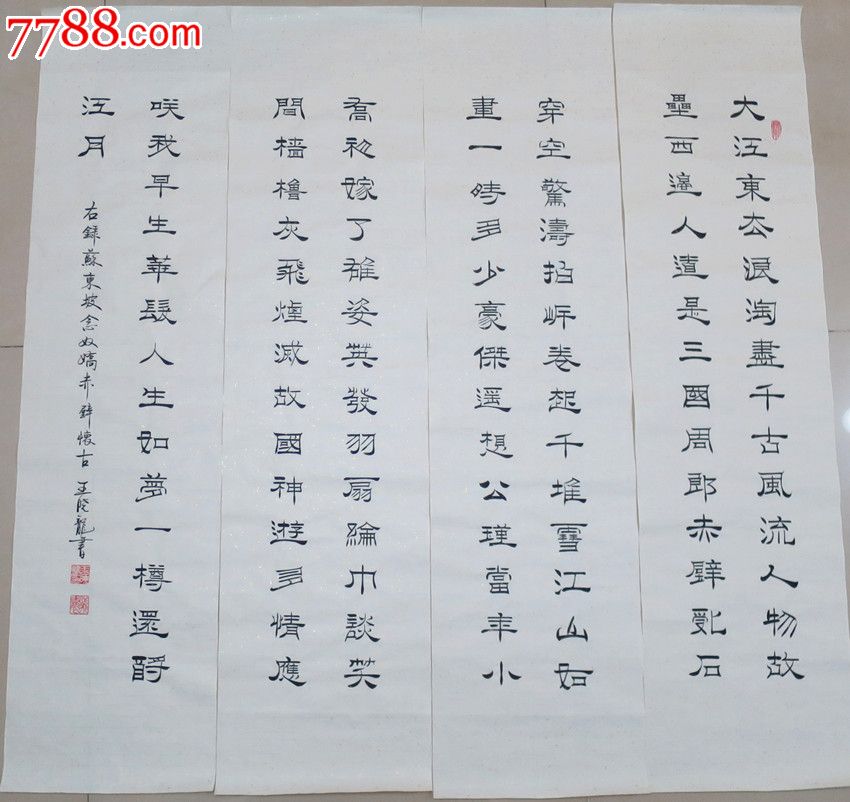 7788.com
大江東去浪淘盡千古風流人物故
壘西邊人道是三國周郎赤壁亂石
穿空驚濤拍岸卷起千堆雪江山如
畫一時多少豪傑遥想公瑾當年小
喬初嫁了雄姿英發羽扇綸巾談笑
間檣櫓灰飛煙滅故國神遊多情應
咲我早生華髮人生如夢一樽還酹
江月
右録蘇東坡念奴嬌赤壁懷古 王龍書